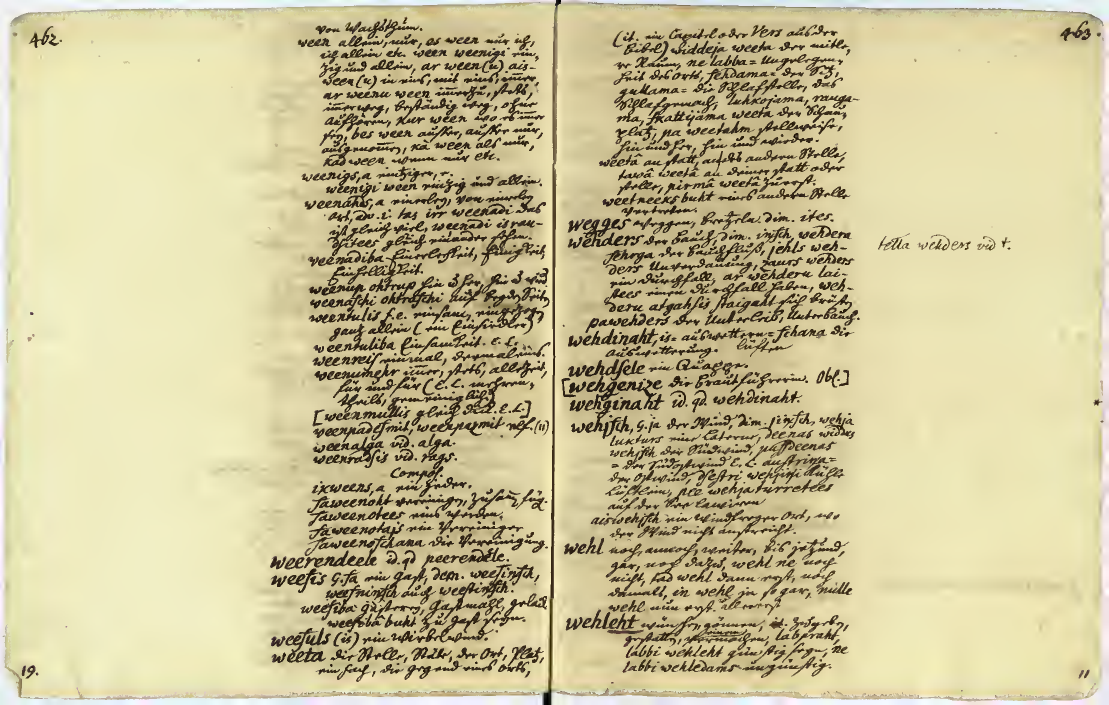 462.
von Wachsthum.
ween allein, nur, os ween nur ich,
ich allein etc. ween weenigi ein-
zig und allein, ar ween (u) ais-
ween (u) in eins, mit eins, immer,
ar weenu ween immerzu, stets,
immerweg, beständig weg, ohne
aufhören, kur ween wo es immer
sey, bes ween ausser, ausser nur,
ausgenommen, kà ween als nur,
kad ween wenn nur etc.
weenigs, a einziger, e.
weenigi ween einzig und allein.
weenahds, a einerley, von einerley
art, adv. i. tas irr weenadi das
ist gleich viel, weenadi
gleich einander
weenadiba Einerleyheit,
weenup ohtrup hin & her, hin & wied.
weenaschi ohtraschi auf beyden Seiten
weentulis f. e. einsam,
ganz allein (ein Einsiedler)
weentuliba Einsamkeit. E. L.
weenreis einmal, dermaleins.
weenumehr immer, stets, allezeit,
für und für (E. L. mehren-
theils, gemeiniglich)
[weenmullis gleich dick. E. L.]
weenpadesmit, weenpazmit elf. (11)
weenalga vid. alga.
weenradsis vid. rags.
Compos.
ixweens, a ein jeder.
saweenoht vereinigen, zusam. füg.
saweenotees eins werden.
saweenotajs ein Vereiniger
saweenoschana die Vereinigung.
weerendeele id. qd peerendele.
weesis G. scha ein Gast, dem. weesinsch,
weesninsch auch weestinsch.
weesiba Gasterey, Gastmahl, gelad.
weesibâ buht zu Gast seyn.
weesuls (is) ein Wirbelwind.
weeta die Stelle, Stäte, der Ort, Platz,
ein Fach, die Gegend eines Orts,
19.
463.
(it. ein Capitel oder Vers aus der
Bibel) widdeja weeta der mitle-
re Raum, ne labba = Ungelegen-
heit des Orts, sehdama = der Sitz,
gullama = die Schlafstelle, das
Schlafgemach, luhkojama, rauga-
ma, skattijama weeta der Schau-
platz, pa weetahm stellweise,
hin und her, hin und wieder.
weetâ an statt, an des andern Stelle,
tawâ weeta an deiner statt oder
stelle, pirmâ weetâ zuerst.
weetneeks buht eines andern Stelle
vertreten.
wegges weggen, Bretzeln. dim. ites.
wehders der Bauch, dim. insch, wehdera
sehrga der Bauchfluß, jehls weh-
ders Unverdauung, zaurs wehders
ein Durchfall, ar wehderu lai-
stees einen Durchfall haben, weh-
deru atgahsis staigaht sich brüsten
pawehders der Unterleib, Unterbauch.
wehdinaht, is = auswettern = schana die
auswetterung. lüften
wehdsele ein Quappe.
[wehgenize die Brautführerin. Obs.]
wehginaht id. qd. wehdinaht.
wehjsch, G. ja der Wind, dim. jinsch, wehja
lukturs eine Laterne, deenas widdus
wehjsch der Südwind, pussdeenas
= der Südostwind E. L. austrina =
der Ostwind, wehjini kühle
Lüftlein, pee wehja turretees
auf der See laviren.
aiswehjsch ein windfreyer Ort, wo
der Wind nicht anstreicht.
wehl noch, annoch, weiter, bis jetzund,
gar, noch dazu, wehl ne noch
nicht, tad wehl dann erst, noch
damals, in wehl ja so gar, nulle
wehl nun erst allererst
wehleht wünschen, gönnen, zugeben,
gestatten, labpraht,
labbi wehleht günstig seyn, ne
labbi wehledams ungünstig.
tella wehders vid t.
11